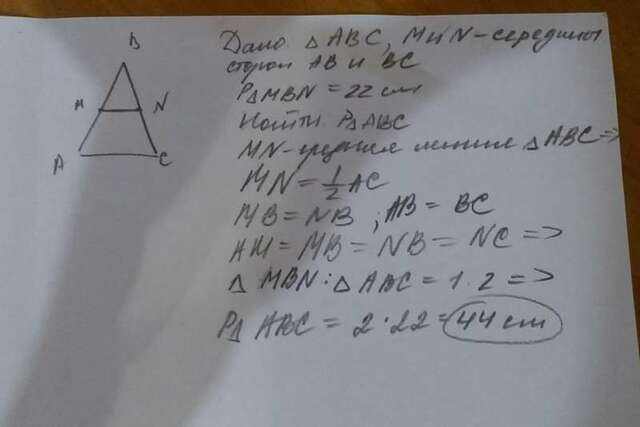 B
M N
A C
Дано: △ ABC, M и N - середины
сторон AB и BC
P△MBN = 22 см
Найти: P△ABC
MN - средняя линия △ ABC =>
MN = 1/2 AC
MB = NB, AB = BC
AM = MB = NB = NC =>
△ MBN : △ ABC = 1 : 2 =>
P△ ABC = 2 · 22 = 44 см